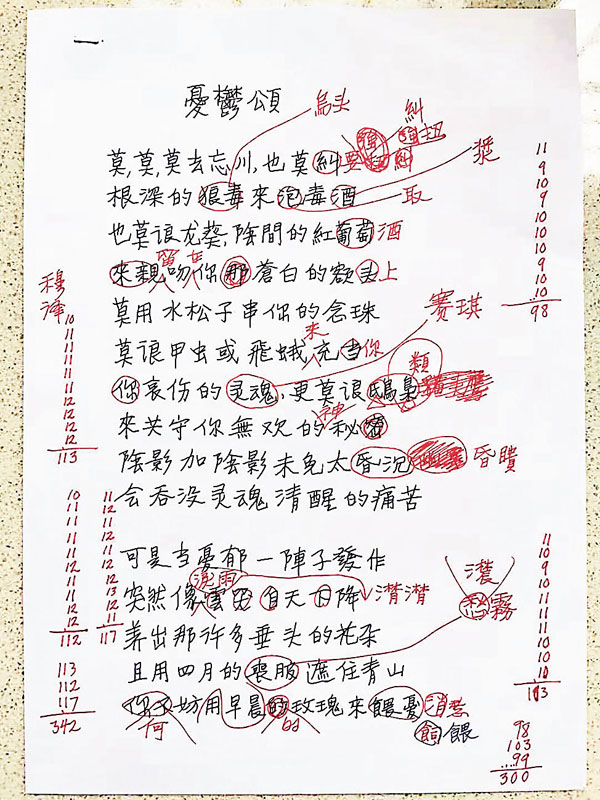 一
憂鬱頌
烏头
糾
扭
莫,莫,莫去忘川,也莫糾
漿
根深的狼毒來泡毒酒
取
也莫讓龙葵,陰間的紅葡萄酒
來親吻你那蒼白的额头上
莫用水松子串你的念珠
賽琪
莫讓甲虫或飛蛾充当你
來
類
你哀伤的灵魂,更莫讓鴟梟
神
來共守你無欢的秘密
陰影加陰影未免太昏沉
昏瞶
会吞没灵魂清醒的痛苦
可是当憂郁一陣子發作
濃
突然像雲 自天下降
潸潸
霧
养出那许多垂头的花朵
且用四月的喪服遮住青山
你不妨用早晨的玫瑰來餵憂
消愁
何
飼餵
11
9
10
9
10
10
10
9
10
10
98
10
11
11
11
11
11
12
12
12
12
113
10
11
11
11
11
11
11
12
12
12
112
11
12
11
12
11
12
12
13
12
11
117
113
112
117
342
11
10
9
10
11
11
11
10
10
10
98
103
99
300